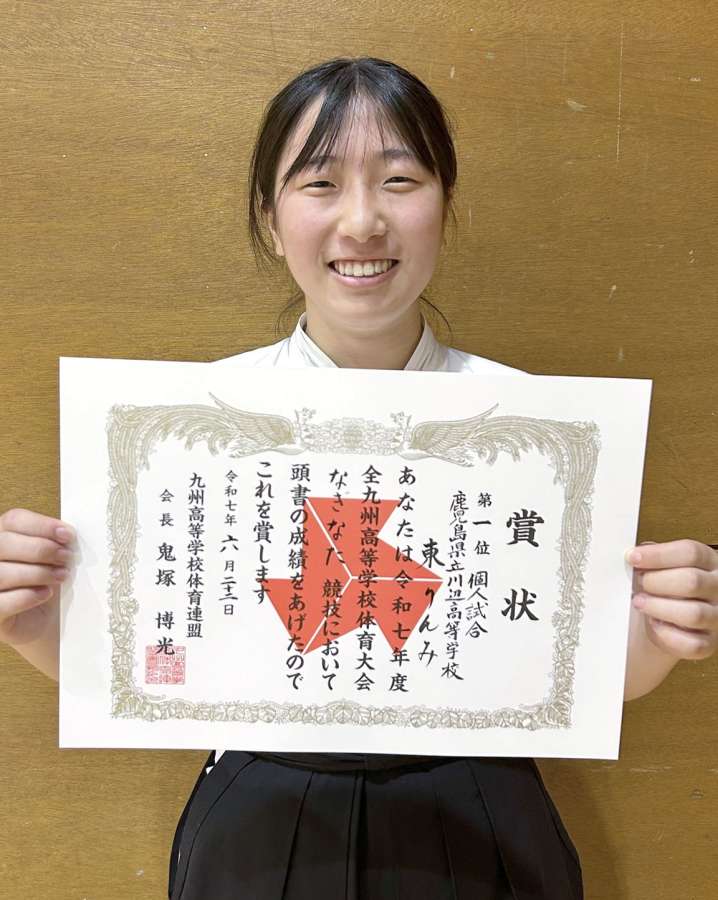 賞状
第一位 個人試合
鹿児島県立川辺高等学校
東りんみ
あなたは令和七年度
全九州高等学校体育大会
なぎなた 競技において
頭書の成績をあげたので
これを賞します
令和七年六月二十二日
九州高等学校体育連盟
会長 鬼塚 博光